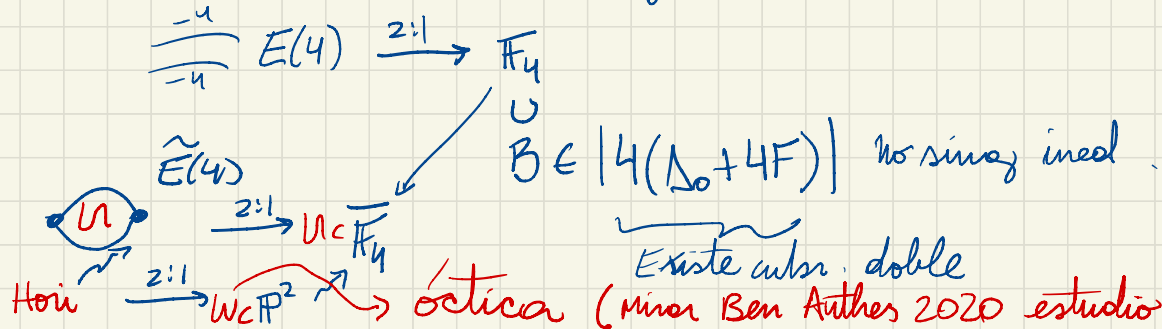 -4
E(4) 2:1 → 𝔽₄
-4
∪
B ∈ |4(Δ₀+4F)| no sing ired.
Ẽ(4) 2:1 → ⊂ 𝔽̄₄
Existe cubr. doble
Hori 2:1 → ⊂ ℙ² → óctica (Mirar Ben Anthes 2020 estudio